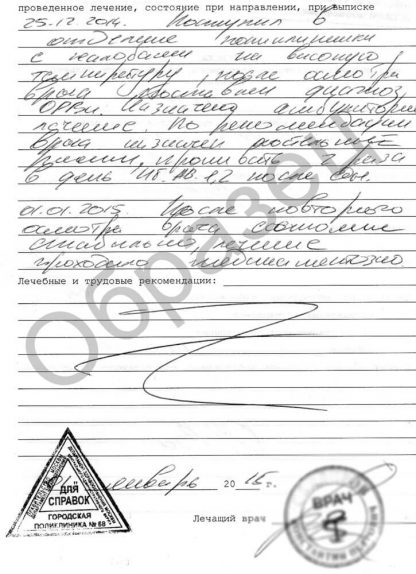 проведенное лечение, состояние при направлении, при выписке
25.12.2014. Поступил в
отделение поликлиники
с жалобами на высокую
температуру, после осмотра
врача поставлен диагноз
ОРВИ. Назначено амбулаторное
лечение. По рекомендации
врача назначен постельный
режим,
в день 1,2 после
01.01.2015. После повторного
осмотра врача состояние
стабильно, лечение
проходило медикаментозно.
Лечебные и трудовые рекомендации:
Образец
январь 2015г.
ДЛЯ
СПРАВОК
ГОРОДСКАЯ
ПОЛИКЛИНИКА № 68
Лечащий врач
ВРАЧ